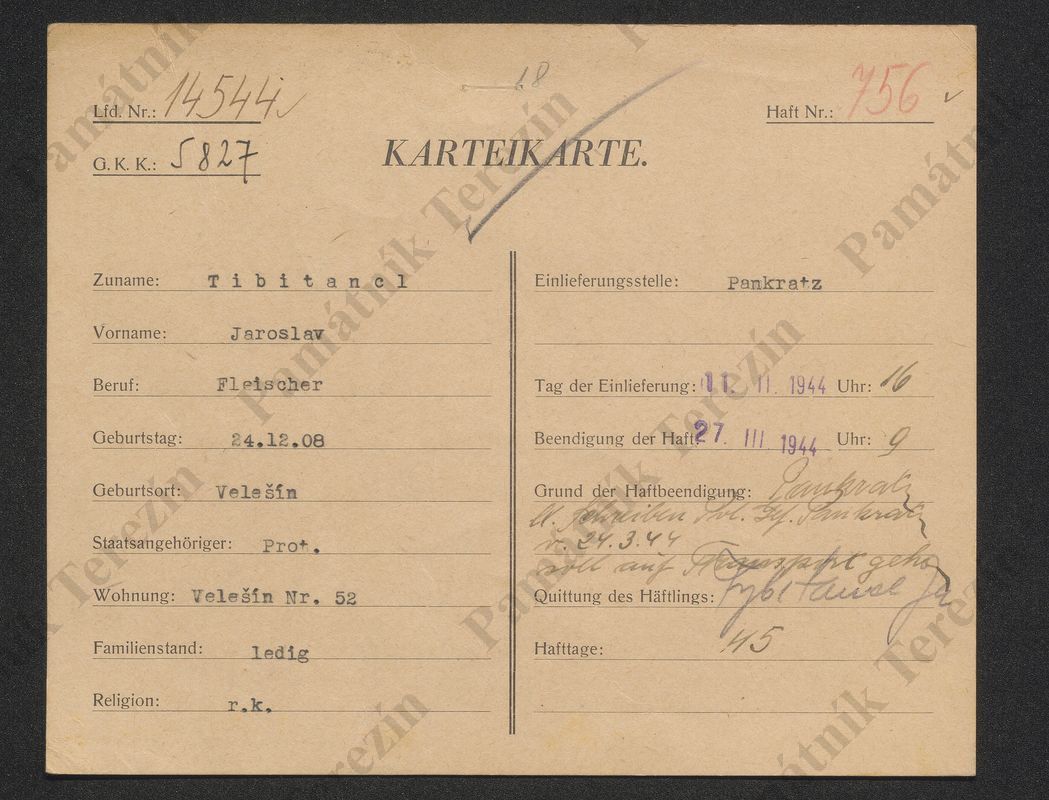 18
Lfd. Nr.: 14544
Haft Nr.: 756
G. K. K.: 5827
KARTEIKARTE.
Zuname: Tibitancl
Vorname: Jaroslav
Beruf: Fleischer
Geburtstag: 24.12.08
Geburtsort: Velešín
Staatsangehöriger: Prot.
Wohnung: Velešín Nr. 52
Familienstand: ledig
Religion: r.k.
Einlieferungsstelle: Pankratz
Tag der Einlieferung: 11. II. 1944 Uhr: 16
Beendigung der Haft: 27. III 1944 Uhr: 9
Grund der Haftbeendigung: Pankratz
Schreiben Pankratz
v. 24.3.44
soll auf Transport gehen
Quittung des Häftlings:
Hafttage: 45
Památník Terezín
Památník Terezín
Památník Terezín
Památník Terezín